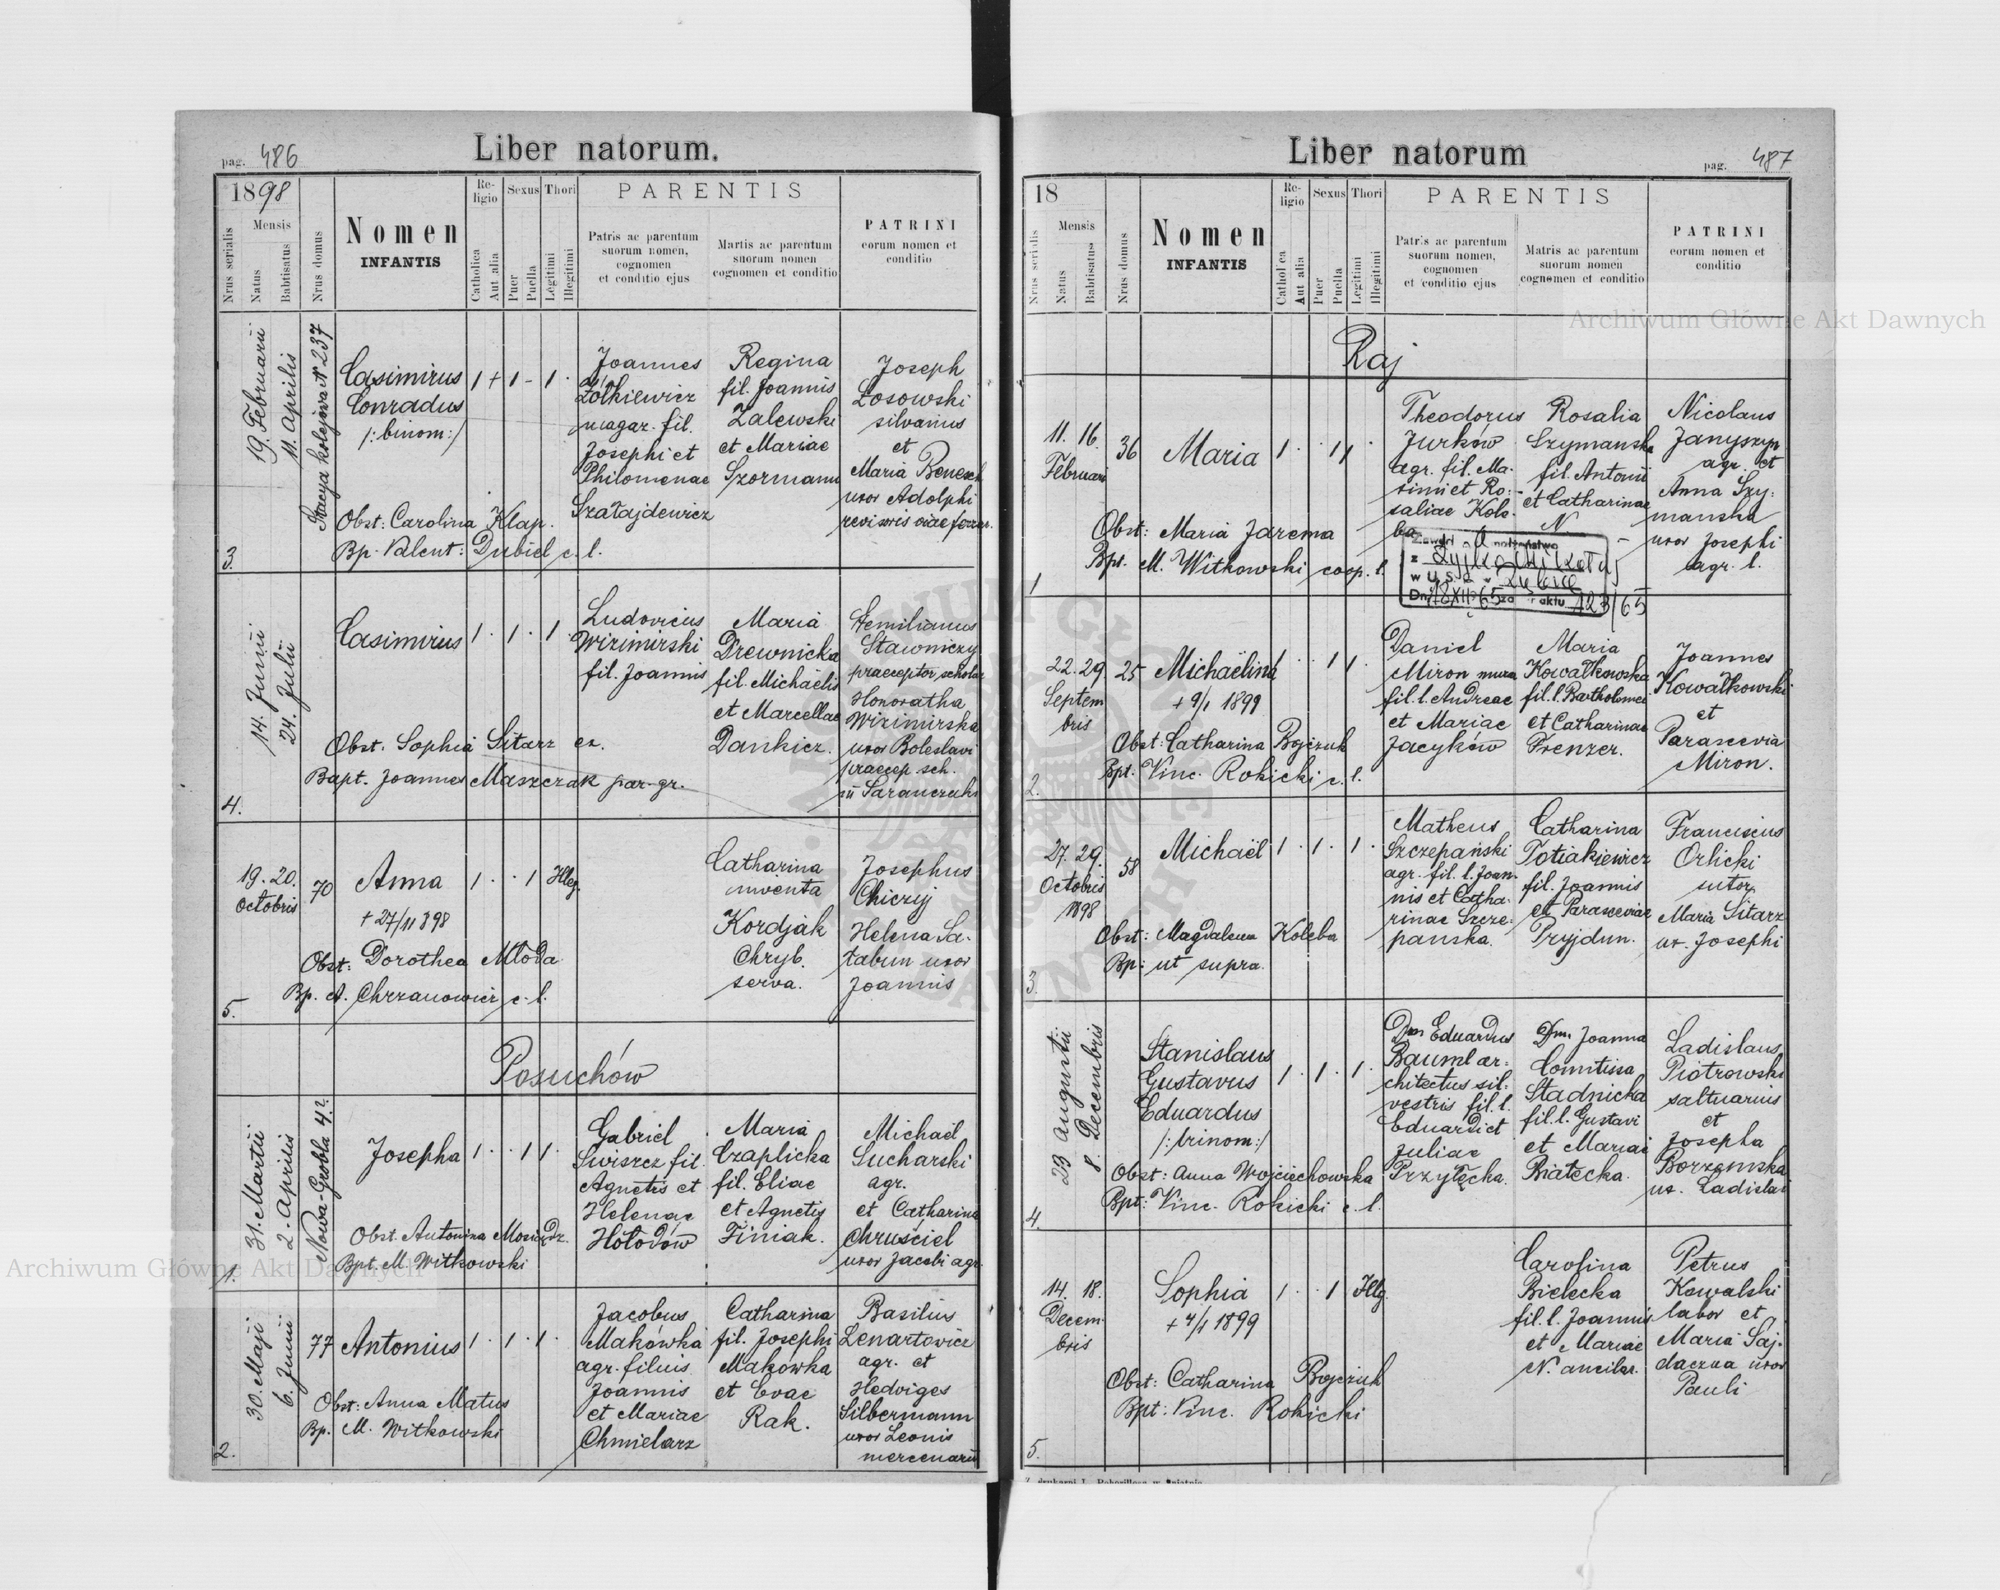 Liber natorum.
pag. 486
1898
Nrus serialis
Mensis
Natus
Babtisatus
Nrus domus
Nomen
INFANTIS
Religio
Catholica
Aut alia
Sexus
Puer
Puella
Thori
Legitimi
Illegitimi
PARENTIS
Patris ac parentum
suorum nomen,
cognomen
et conditio ejus
Martis ac parentum
suorum nomen
cognomen et conditio
PATRINI
eorum nomen et
conditio
3.
19. Februarii
11. Aprilis
Stacya kolejowa N 237
Casimirus
Conradus
/: binom :/
1 + 1 - 1 .
Joannes
Żółkiewicz
magaz. fil.
Josephi et
Philomenae
Szałajdewicz
Regina
fil. Joannis
Zalewski
et Mariae
Szormann
Joseph
Łosowski
silvanus
et
Maria Benesch
uxor Adolphi
revisoris viae ferrar.
Obst: Carolina Klap.
Bp. Valent: Dubiel c. l.
4.
14. Junii
24. Julii
Casimirus
1 . 1 . 1 .
Ludovicus
Wizimirski
fil. Joannis
Maria
Drewnicka
fil. Michaelis
et Marcellae
Dankiez.
Aemilianus
Sławniczy
praeceptor scholae
Honoratha
Wizimirska
uxor Boleslavi
praecep. sch.
in Saranczuki
Obst. Sophia Sitarz ex.
Bapt. Joannes Maszczak par. gr.
5.
19. 20.
Octobris
70
Anna
+ 27/11 898
1 . . 1 Illeg.
Catharina
inventa
Kordjak
Chryb.
serva.
Josephus
Chiczij
Helena Sa-
łabun uxor
Joannis
Obst: Dorothea Młoda
Bp. A. Chrzanowicz c. l.
Posuchów
1.
31. Martii
2. Aprilis
Nowa-Grobla 42.
Josepha
1 . . 1 1 .
Gabriel
Swiszcz fil.
Agnetis et
Helenae
Hołodów
Maria
Czaplicka
fil. Eliae
et Agnetis
Finiak.
Michaël
Sucharski
agr.
et Catharina
Chruściel
uxor Jacobi agr.
Obst. Antonina Mosiądz.
Bpt. M. Witkowski
2.
30. Maji
6. Junii
77
Antonius
1 . 1 . 1 .
Jacobus
Makówka
agr. filius
Joannis
et Mariae
Chmielarz
Catharina
fil. Josephi
Makówka
et Evae
Rak.
Basilius
Lenartowicz
agr. et
Hedviges
Silbermann
uxor Leonis
mercenarii
Obst: Anna Matus
Bp. M. Witkowski
Liber natorum
pag. 487
18
Nrus serialis
Mensis
Natus
Babtisatus
Nrus domus
Nomen
INFANTIS
Religio
Catholica
Aut alia
Sexus
Puer
Puella
Thori
Legitimi
Illegitimi
PARENTIS
Patris ac parentum
suorum nomen,
cognomen
et conditio ejus
Matris ac parentum
suorum nomen
cognomen et conditio
PATRINI
eorum nomen et
conditio
Raj
1
11. 16.
Februarii
36
Maria
1 . . 1 1 .
Theodorus
Jurków
agr. fil. Ma-
simi et Ro-
saliae Kole-
ba
Rosalia
Szymanska
fil. Antonii
et Catharinae
N
Nicolaus
Janyszyn
agr. et
Anna Szy-
manska
uxor Josephi
agr. l.
Obst: Maria Jarema
Bpt. M. Witkowski coop. l.
małżeństwo
z
w U.S.C. w
Dnia 18 XII 65 za Nr aktu 123/65
2.
22. 29.
Septem
bris
25
Michaëlina
+ 9/1 1899
1 . . 1 1 .
Daniel
Miron mura
fil. l. Andreae
et Mariae
Jacyków
Maria
Kowałkowska
fil. l. Bartholomei
et Catharinae
Frenzer.
Joannes
Kowałkowski
et
Parascevia
Miron.
Obst: Catharina Bojczuk
Bpt. Vinc. Rokicki c. l.
3.
27. 29.
Octobris
1898
58
Michaël
1 . 1 . 1 .
Matheus
Szczepański
agr. fil. l. Joan-
nis et Catha-
rinae Szcze-
panska.
Catharina
Potiakiewicz
fil. Joannis
et Parasceviae
Pryjdun.
Franciscus
Orlicki
sutor,
Maria Sitarz
ux. Josephi
Obst: Magdalena Koleba
Bp: ut supra.
4.
29 Augusti
8. Decembris
Stanislaus
Gustavus
Eduardus
/: trinom :/
1 . 1 . 1 .
Dnn Eduardus
Bauml ar-
chitectus sil-
vestris fil. l.
Eduardi et
Juliae
Przyłęcka.
Dnn. Joanna
Comitissa
Stadnicka
fil. l. Gustavi
et Mariae
Białecka.
Ladislaus
Piotrowski
saltuarius
et
Josepha
Borzemska
ux. Ladislai
Obst: Anna Wojciechowska
Bpt: Vinc. Rokicki c. l.
5.
14. 18.
Decem-
bris
Sophia
+ 4/1 1899
1 . . 1 Illg.
Carolina
Bielecka
fil. l. Joannis
et Mariae
N. ancilar.
Petrus
Kowalski
labor et
Maria Saj-
daczna uxor
Pauli
Obst: Catharina Bojczuk
Bpt: Vinc. Rokicki
Archiwum Główne Akt Dawnych
Archiwum Główne Akt Dawnych